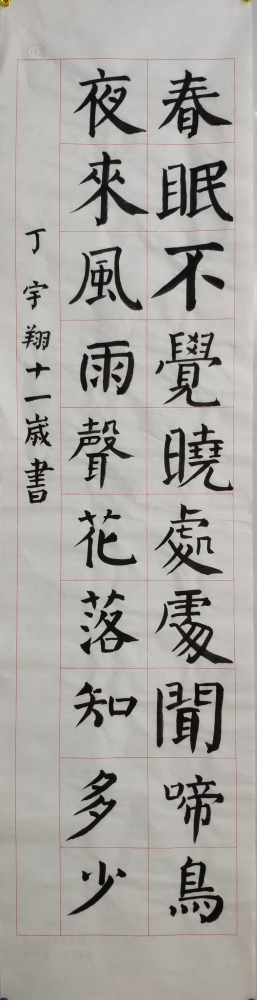 春眠不覺曉處處聞啼鳥
夜來風雨聲花落知多少
丁宇翔十一歲書